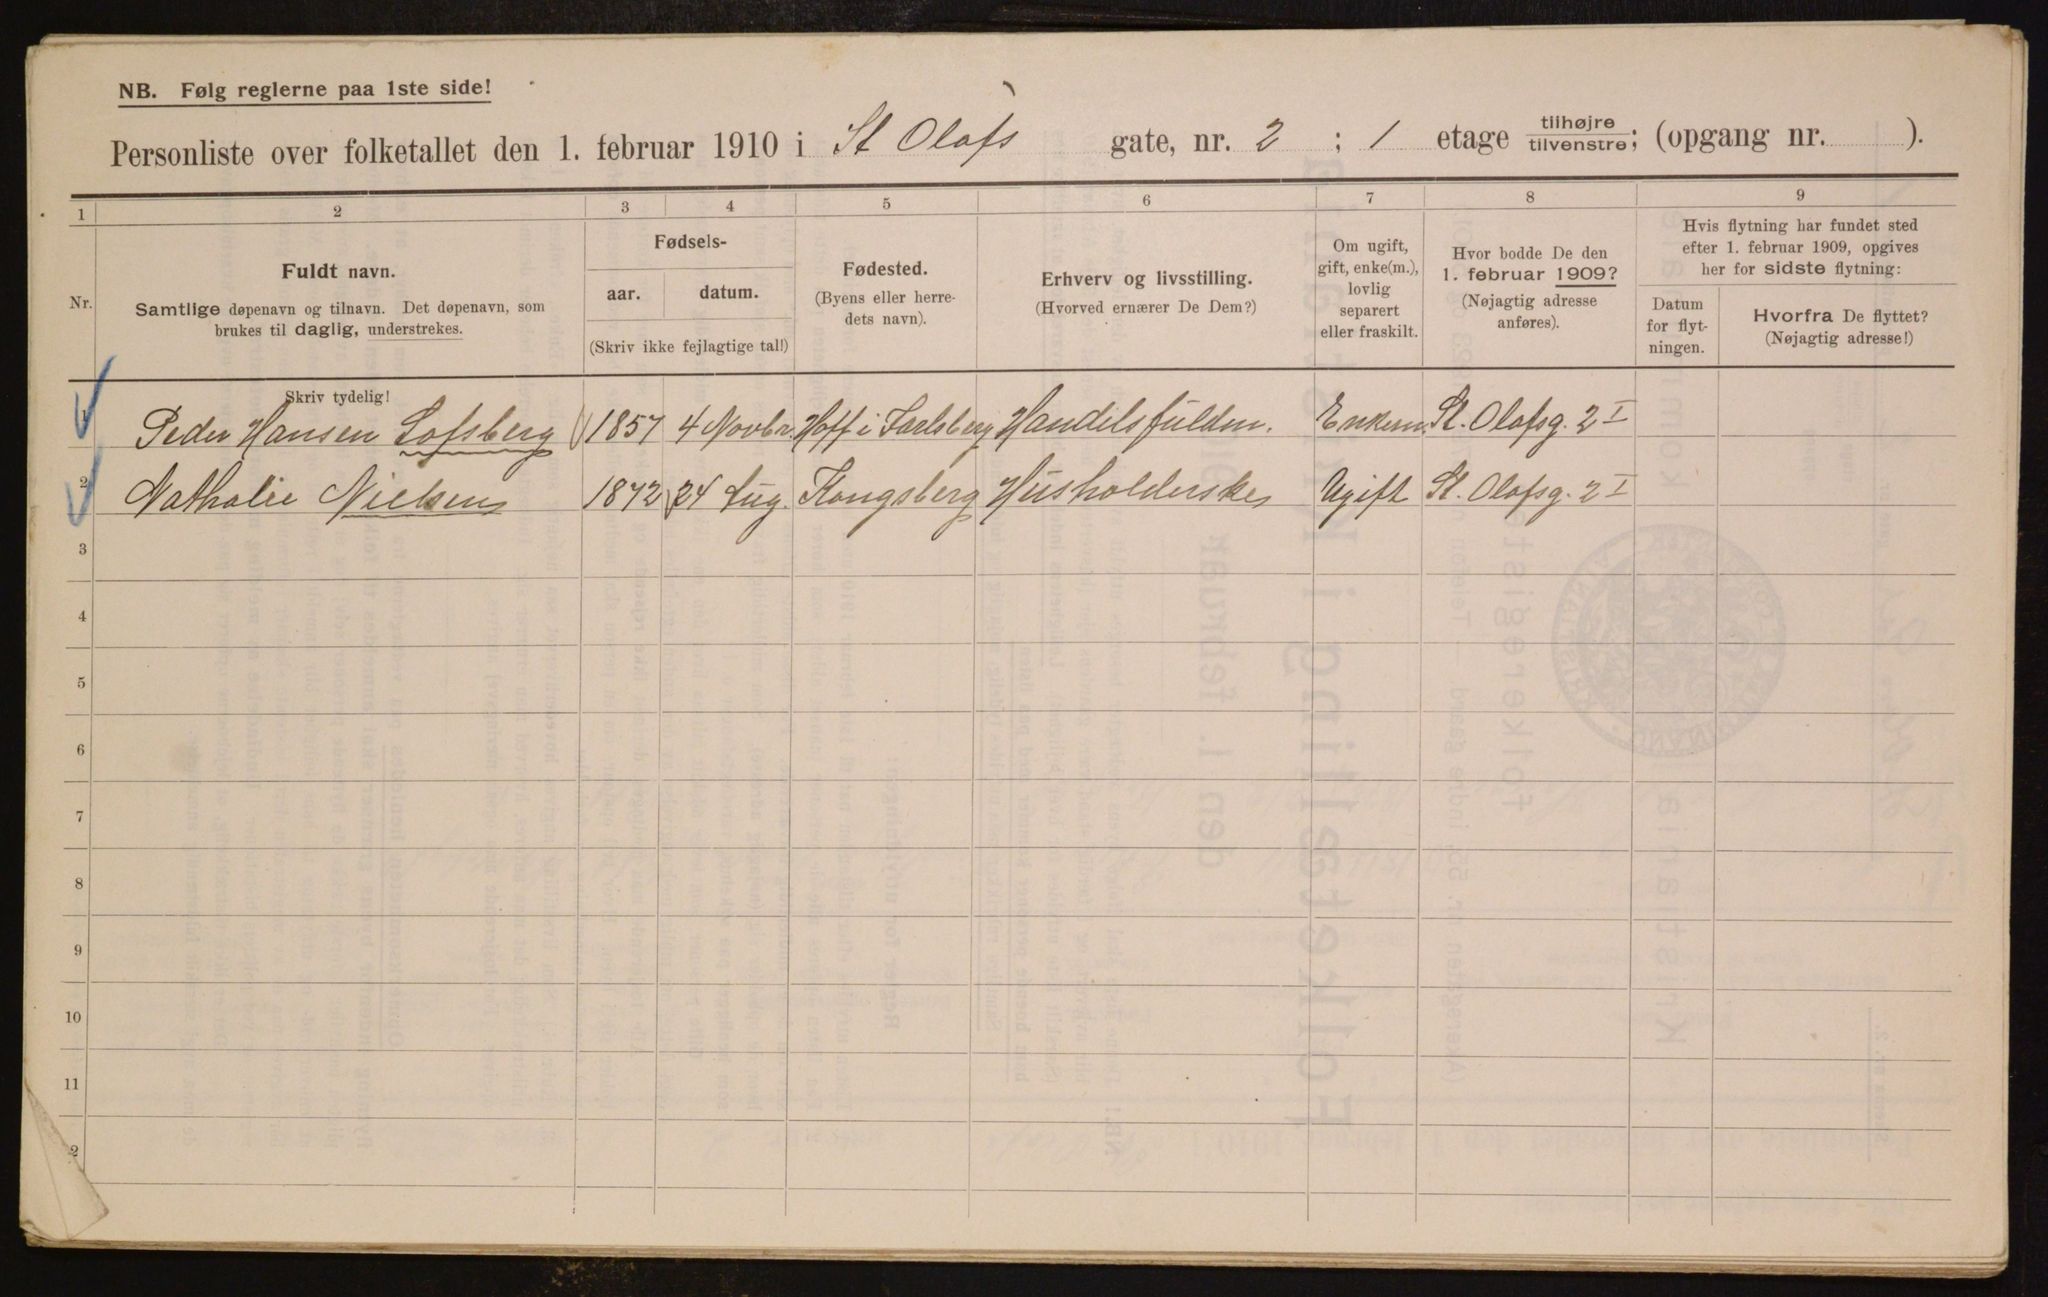 NB. Følg reglerne paa 1ste side!
Personliste over folketallet den 1. februar 1910 i St Olafs gate, nr. 2 ; 1 etage tilhøjre tilvenstre; (opgang nr. ).
1 2 3 4 5 6 7 8 9
Nr.
Fuldt navn.
Samtlige døpenavn og tilnavn. Det døpenavn, som
brukes til daglig, understrekes.
Fødsels-
aar. datum.
(Skriv ikke fejlagtige tal!)
Fødested.
(Byens eller herre-
dets navn).
Erhverv og livsstilling.
(Hvorved ernærer De Dem?)
Om ugift,
gift, enke(m.),
lovlig
separert
eller fraskilt.
Hvor bodde De den
1. februar 1909?
(Nøjagtig adresse
anføres).
Hvis flytning har fundet sted
efter 1. februar 1909, opgives
her for sidste flytning:
Datum
for flyt-
ningen.
Hvorfra De flyttet?
(Nøjagtig adresse!)
Skriv tydelig!
1 Peder Hansen Lofsberg 1857 4 Novbr. Hoff i Jarlsberg Handelsfuldm. Enkem. St. Olafsg. 2 I
2 Nathalie Nielsen 1872 24 Aug. Kongsberg Husholderske Ugift St. Olafsg. 2 I
3
4
5
6
7
8
9
10
11
2